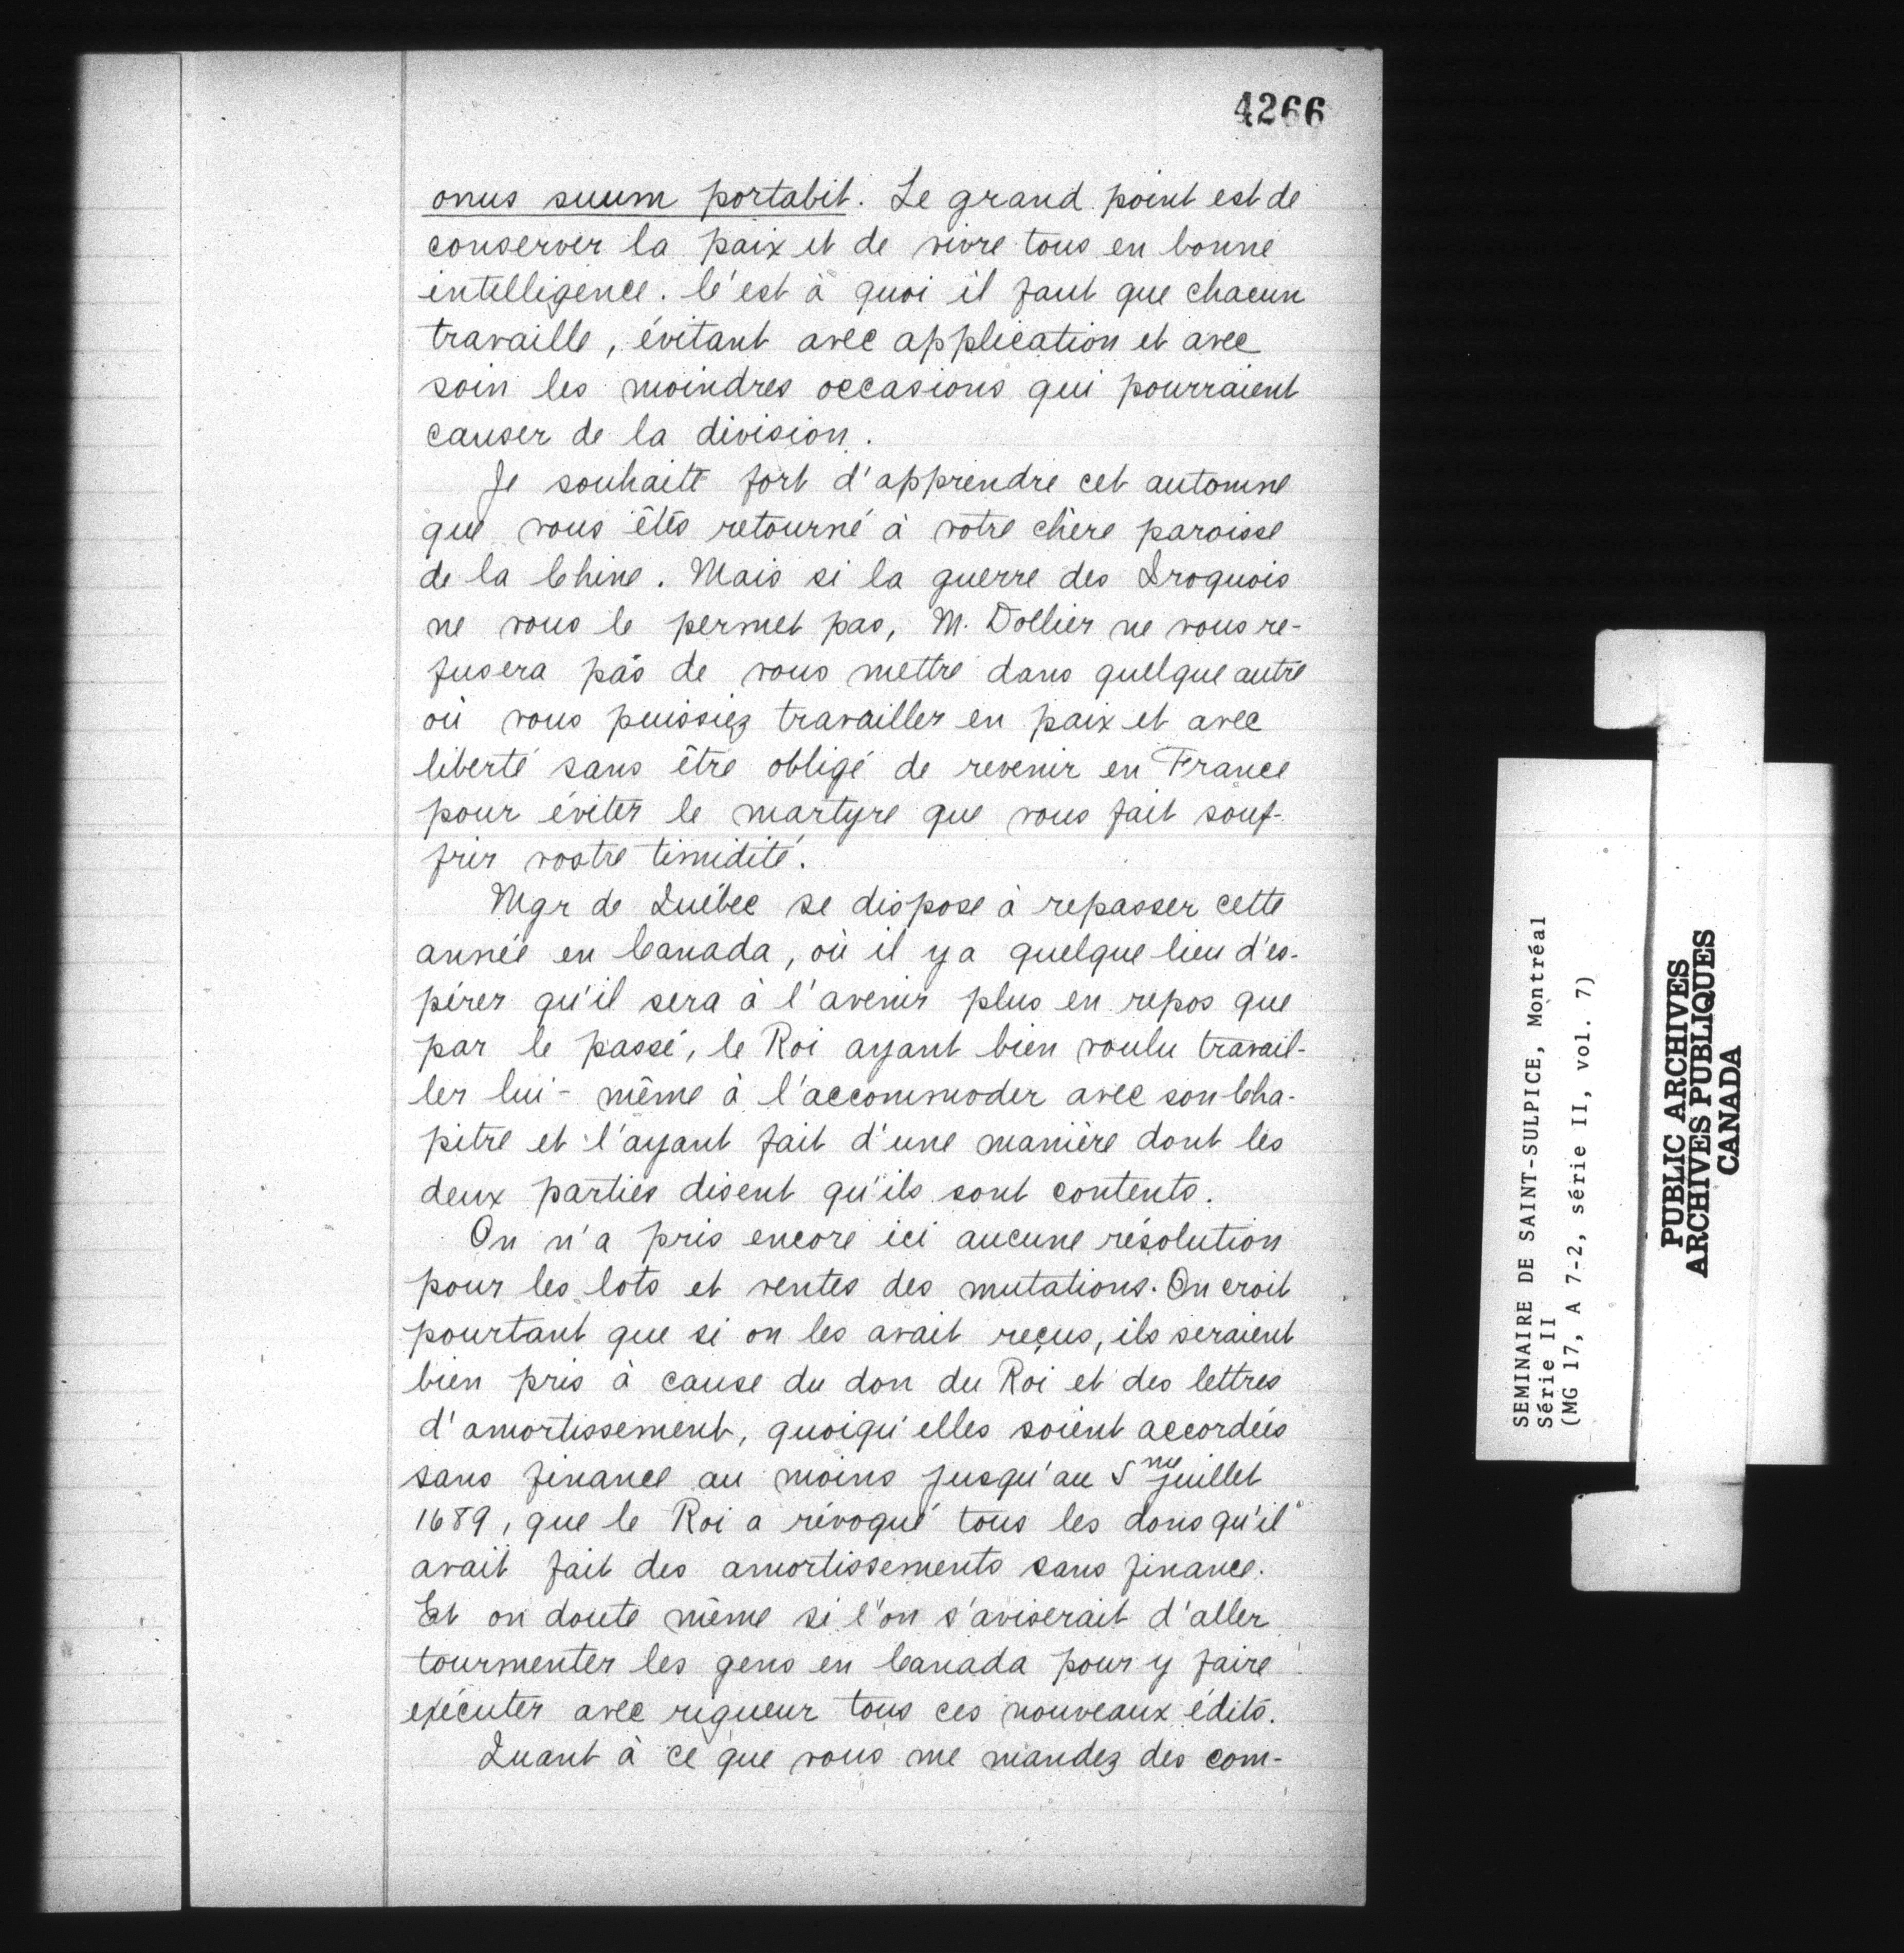 4266
onus suum portabit. Le grand point est de
conserver la paix et de vivre tous en bonne
intelligence. C'est à quoi il faut que chacun
travaille, évitant avec application et avec
soin les moindres occasions qui pourraient
causer de la division.
Je souhaite fort d'apprendre cet automne
que vous êtes retourné à votre chère paroisse
de la Chine. Mais si la guerre des Iroquois
ne vous le permet pas, M. Dollier ne vous re-
fusera pas de vous mettre dans quelque autre
où vous puissiez travailler en paix et avec
liberté sans être obligé de revenir en France
pour éviter le martyre que vous fait souf-
frir vostre timidité.
Mgr de Québec se dispose à repasser cette
année en Canada, où il y a quelque lieu d'es-
pérer qu'il sera à l'avenir plus en repos que
par le passé, le Roi ayant bien voulu travail-
ler lui-même à l'accommoder avec son Cha-
pitre et l'ayant fait d'une manière dont les
deux parties disent qu'ils sont contents.
On n'a pris encore ici aucune résolution
pour les lots et ventes des mutations. On croit
pourtant que si on les avait reçus, ils seraient
bien pris à cause du don du Roi et des lettres
d'amortissement, quoiqu'elles soient accordées
sans finance au moins jusqu'au 5me juillet
1689, que le Roi a révoqué tous les dons qu'il
avait fait des amortissements sans finance.
Et on doute même si l'on s'aviserait d'aller
tourmenter les gens en Canada pour y faire
exécuter avec rigueur tous ces nouveaux édits.
Quant à ce que vous me mandez des com-
SEMINAIRE DE SAINT-SULPICE, Montréal
Série II
(MG 17, A 7-2, série II, vol. 7)
PUBLIC ARCHIVES
ARCHIVES PUBLIQUES
CANADA